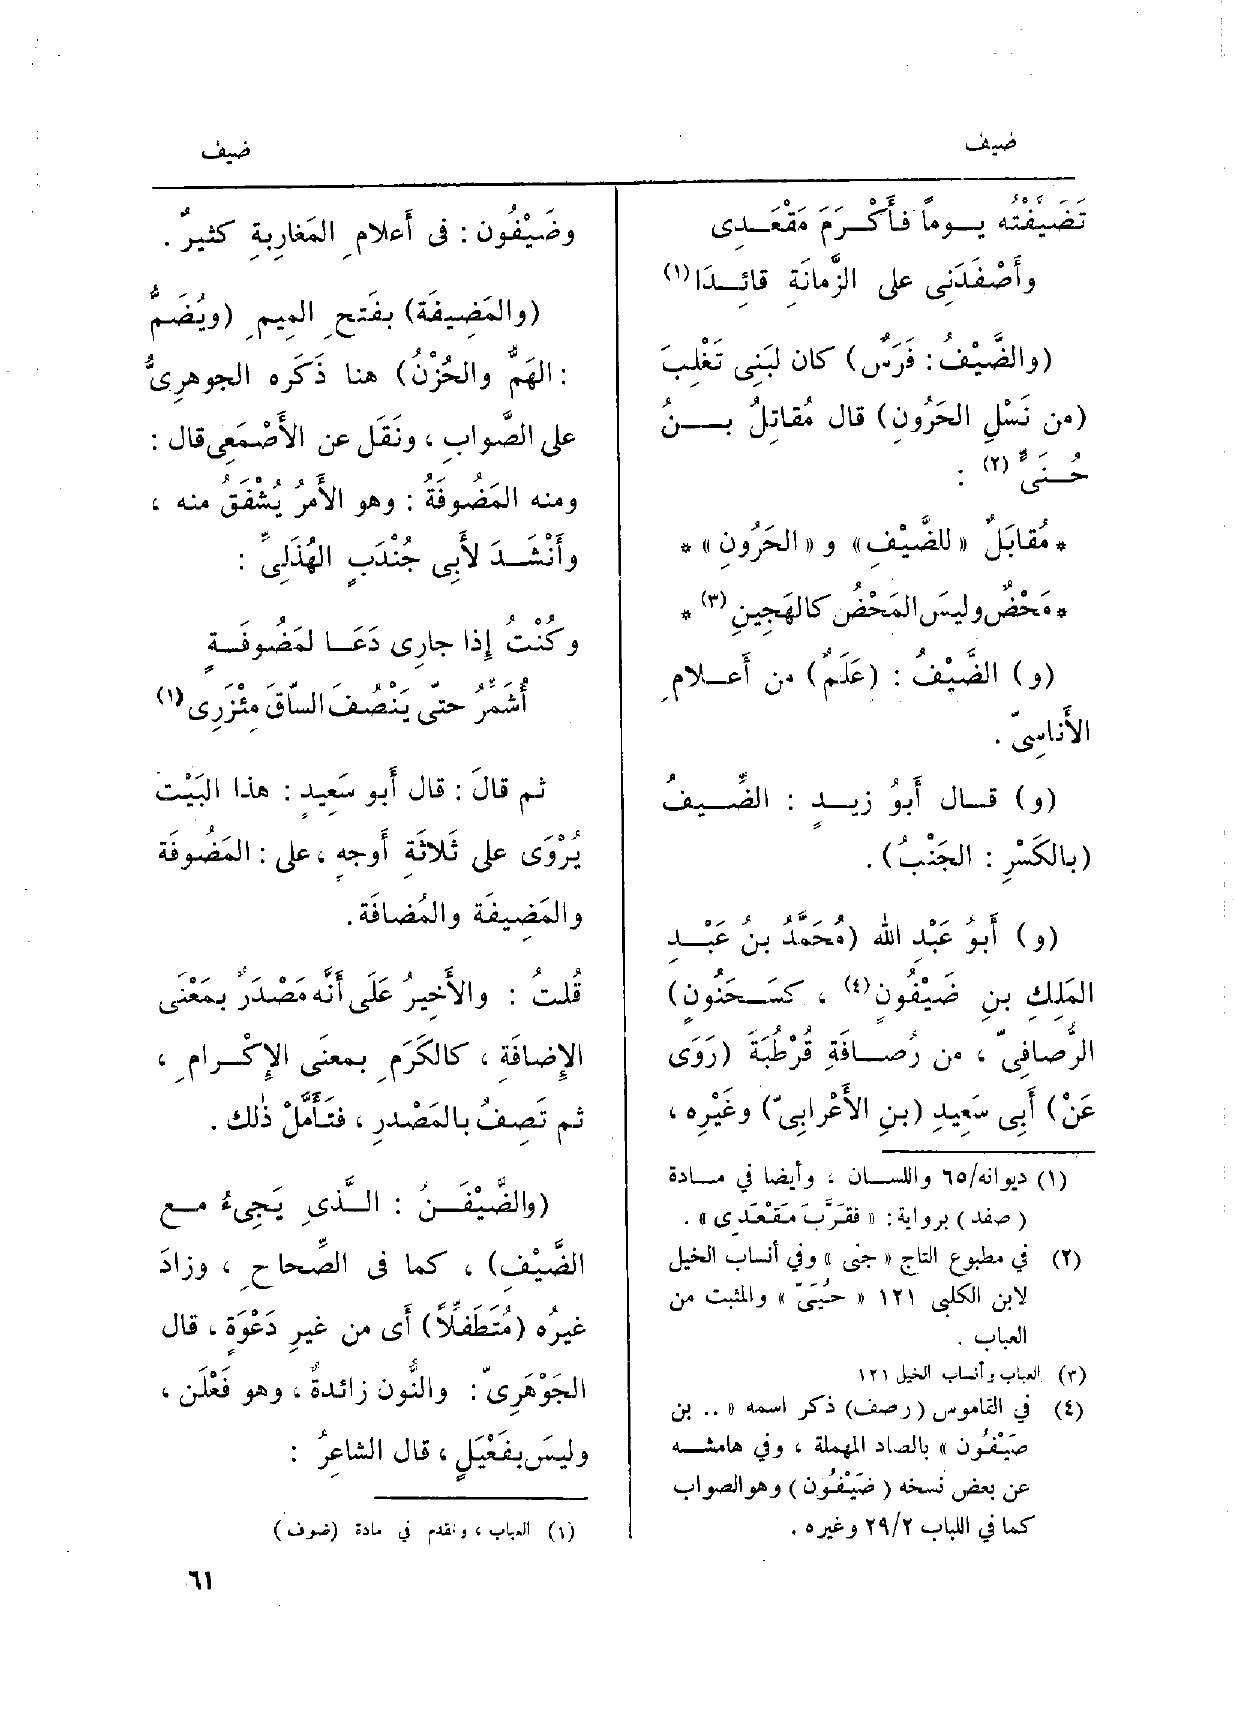 ضيف
ضيف
تَضَيَّفْتُه يـوماً فأَكْرَمَ مَقْعَـدِى
وأَصْفَدَنِى على الزَّمانَةِ قائِـدَا(١)
(والضَّيْفُ: فَرَسٌ) كان لبَنِى تَغْلِبَ
(من نَسْلِ الحَرُونِ) قال مُقاتِلُ بـنُ
حُـنَىٍّ(٢) :
* مُقابَلٌ «للضَّيْفِ» و «الحَرُونِ» *
* مَحْضٌ وليسَ المَحْضُ كالهَجِينِ(٣) *
(و) الضَّيْفُ : (عَلَمٌ) من أَعـلامِ
الأَناسِىّ .
(و) قـال أَبوُ زيـدٍ : الضِّـيفُ
(بالكَسْرِ : الجَنْبُ).
(و) أَبوُ عَبْدِ الله (مُحَمَّدُ بنُ عَبْـدِ
المَلِكِ بنِ ضَيْفُونٍ(٤) ، كسَـحَنُونٍ)
الرُّصافِىّ ، من رُصـافَةِ قُرْطُبَةَ (رَوَى
عَنْ) أَبِى سَعِيدِ (بنِ الأَعْرابِىّ) وغَيْرِه ،
(١) ديوانه/٦٥ واللسـان ، وأيضا في مـادة
(صفد) برواية: «فقرَّبَ مَقْعَدِى» .
(٢) في مطبوع التاج «جنى» وفي أنساب الخيل
لابن الكلبى ١٢١ «حُيَىّ» والمثبت من
العباب .
(٣) العباب وأنساب الخيل ١٢١
(٤) في القاموس (رصف) ذكر اسمه « .. بن
صَيْفُون» بالصاد المهملة ، وفي هامشـه
عن بعض نسخه (ضَيْفُون) وهو الصواب
كما في اللباب ٢٩/٢ وغيره .
وضَيْفُون : فى أَعلامِ المَغارِبةِ كَثيرٌ .
(والمَضِيفَة) بفَتحِ الميمِ (ويُضَمُّ
: الهَمُّ والحُزْنُ) هنا ذَكَره الجوهرِىُّ
على الصَّوابِ ، ونَقَل عن الأَصْمَعِى قال :
ومنه المَضُوفَةُ : وهو الأَمرُ يُشْفَقُ منه ،
وأَنْشَـدَ لأَبِى جُنْدَبٍ الهُذَلِىِّ :
وكُنْتُ إذا جارِى دَعَـا لمَضُوفَـةٍ
أُشَمِّرُ حتى يَنْصُفَ السّاقَ مِئْزَرِى(١)
ثم قالَ : قال أَبو سَعِيدٍ : هذا البَيْت
يُرْوَى على ثَلاثَةِ أَوجهٍ ، على : المَضُوفَة
والمَضِيفَة والمُضافَة.
قُلتُ : والأَخِيرُ عَلَى أَنَّه مَصْدَرٌ بمَعْنَى
الإِضافَةِ ، كالكَرَمِ بمعنَى الإِكْـرامِ ،
ثم تَصِفُ بالمَصْدرِ ، فتَأَمَّلْ ذٰلك .
(والضَّيْفَـنُ : الَّـذى يَجِىءُ مـع
الضَّيْفِ) ، كما فى الصِّحاحِ ، وزادَ
غيرُه (مُتَطَفِّلاً) أَى من غيرِ دَعْوَةٍ ، قال
الجَوْهَرِىّ : والنُّون زائدةٌ ، وهو فَعْلَن ،
وليسَ بفَعْيَلٍ ، قال الشاعرُ :
(١) العباب ، وتقدم في مادة (ضوف)
٦١